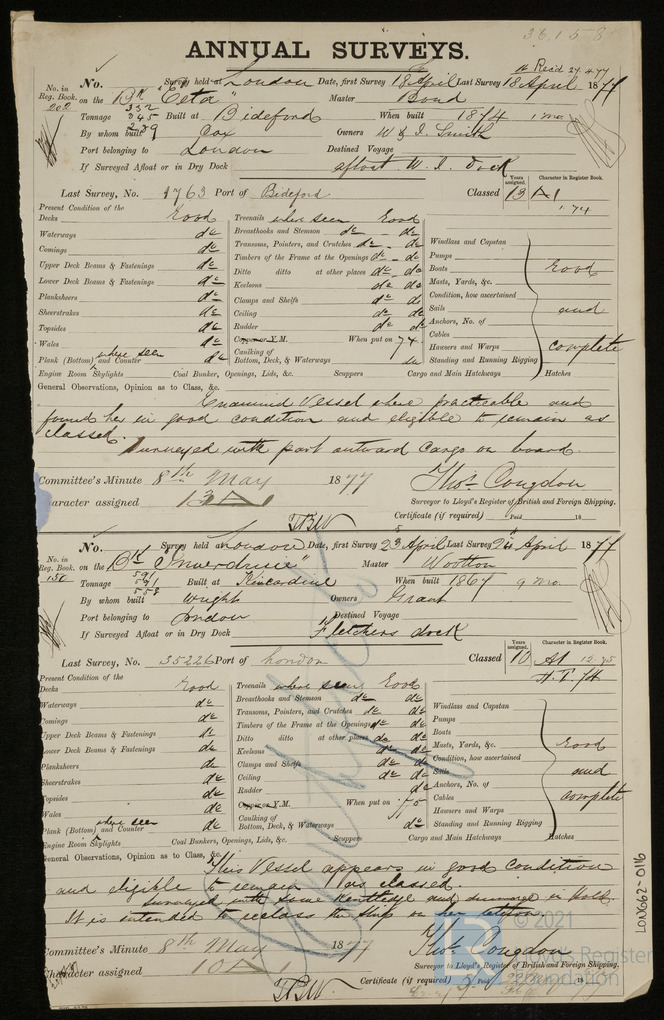 36158
ANNUAL SURVEYS.
Rec'd 27.4.77
No. in Reg. Book. 202
No. Survey held at London Date, first Survey 18 April Last Survey 18 April 1877
on the Bk "Ceta" Master Bond
Tonnage 332 345 289 Built at Bideford When built 1874 1 mo.
By whom built Cox Owners W & J. Smith
Port belonging to London Destined Voyage
If Surveyed Afloat or in Dry Dock afloat W. I. Dock
Last Survey, No. 1763 Port of Bideford Classed
Years assigned. 13
Character in Register Book. A1 1.74
Present Condition of the
Decks Good
Waterways do
Comings do
Upper Deck Beams & Fastenings do
Lower Deck Beams & Fastenings do
Planksheers do
Sheerstrakes do
Topsides do
Wales do
Plank (Bottom) and Counter where seen do
Engine Room Skylights
Treenails where seen Good
Breasthooks and Stemson do - do
Transoms, Pointers, and Crutches do - do
Timbers of the Frame at the Openings do - do
Ditto ditto at other places do - do
Keelsons do do
Clamps and Shelfs do do
Ceiling do do
Rudder do do
Copper or Y.M. When put on 74
Caulking of
Bottom, Deck, & Waterways
Coal Bunker, Openings, Lids, &c. Scuppers Cargo and Main Hatchways Hatches
Windlass and Capstan
Pumps
Boats
Masts, Yards, &c.
Condition, how ascertained
Sails
Anchors, No. of
Cables
Hawsers and Warps
Standing and Running Rigging
Good
and
complete
General Observations, Opinion as to Class, &c.
Examined Vessel where practicable and
found her in good condition and eligible to remain as
classed.
Surveyed with part outward cargo on board.
Committee's Minute 8th May 1877
Character assigned 13 A1
Thos. Congdon
Surveyor to Lloyd's Register of British and Foreign Shipping.
Certificate (if required) Paid 18
No. in Reg. Book. 150
No. Survey held at London Date, first Survey 23 April Last Survey 24 April 1877
on the Bk "Inverdruie" Master Wootton
Tonnage 591 591 553 Built at Kincardine When built 1867 9 mo.
By whom built Wright Owners Grant
Port belonging to London Destined Voyage
If Surveyed Afloat or in Dry Dock Fletchers dock
Last Survey, No. 35226 Port of London Classed
Years assigned. 10
Character in Register Book. A1 12.75
Present Condition of the
Decks Good
Waterways do
Comings do
Upper Deck Beams & Fastenings do
Lower Deck Beams & Fastenings do
Planksheers do
Sheerstrakes do
Topsides do
Wales do
Plank (Bottom) and Counter where seen do
Engine Room Skylights
Treenails where seen Good
Breasthooks and Stemson do do
Transoms, Pointers, and Crutches do do
Timbers of the Frame at the Openings do do
Ditto ditto at other places do do
Keelsons do do
Clamps and Shelfs do do
Ceiling do do
Rudder do
Copper or Y.M. When put on 75
Caulking of
Bottom, Deck, & Waterways do
Coal Bunkers, Openings, Lids, &c. Scuppers Cargo and Main Hatchways Hatches
Windlass and Capstan
Pumps
Boats
Masts, Yards, &c.
Condition, how ascertained
Sails
Anchors, No. of
Cables
Hawsers and Warps
Standing and Running Rigging
Good
and
complete
General Observations, Opinion as to Class, &c.
This Vessel appears in good condition
and eligible to remain as classed.
Surveyed with some Kentledge and dunnage in hold.
It is intended to reclass the ship on her return
Committee's Minute 8th May 1877
Character assigned 10 A
Thos. Congdon
Surveyor to Lloyd's Register of British and Foreign Shipping.
Certificate (if required)
LON662-0116
© 2021
Lloyd's Register
Foundation